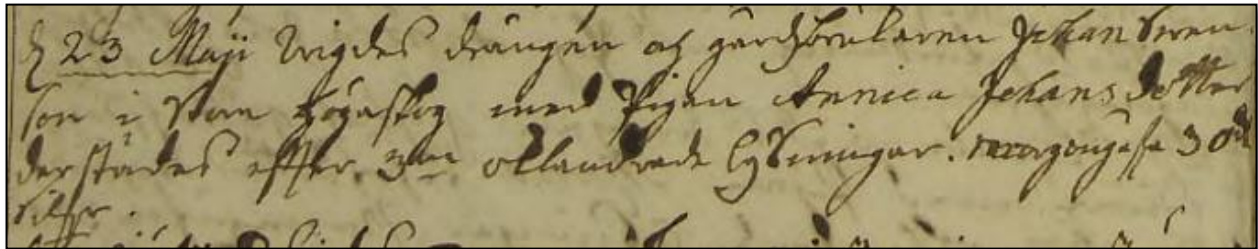 d 23 Maji Wigdes drängen och gårdsbrukaren Johan Swen-
son i Stom Högaskog med Pigan Annica Johans dotter
derstädes effter 3ne oklandrade Lysningar. morgongåfa 30 dr
Silfr.